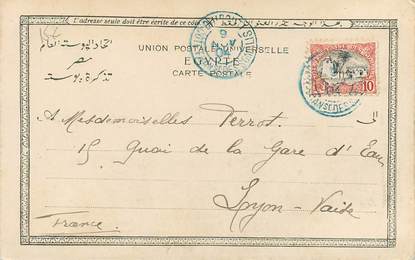 L'adresse seule doit être écrite de ce côté
اتحاد البوستة العام
UNION POSTALE UNIVERSELLE
مصر
EGYPTE
تذكرة بوستة
CARTE POSTALE
10
A Mesdemoiselles Perrot.
15 Quai de la Gare d'Eau
Lyon-Vaise
France